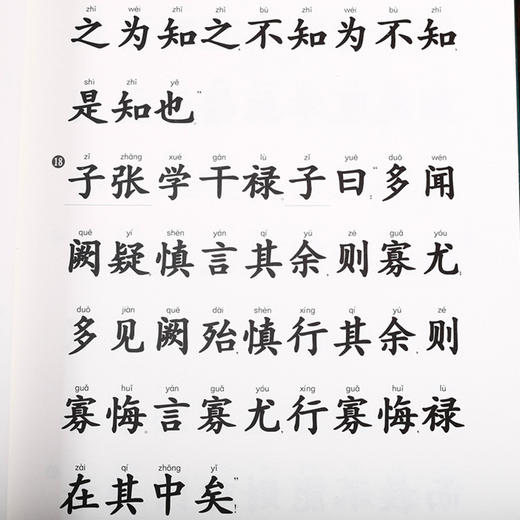 zhī wéi zhī zhī bù zhī wéi bù zhī
之为知之,不知为不知,
shì zhī yě
是知也”
zǐ zhāng xué gān lù zǐ yuē duō wén
18 子张学干禄,子曰:“多闻
quē yí shèn yán qí yú zé guǎ yóu
阙疑,慎言其余,则寡尤;
duō jiàn quē dài shèn xíng qí yú zé
多见阙殆,慎行其余,则
guǎ huǐ yán guǎ yóu xíng guǎ huǐ lù
寡悔。言寡尤,行寡悔,禄
zài qí zhōng yǐ
在其中矣”